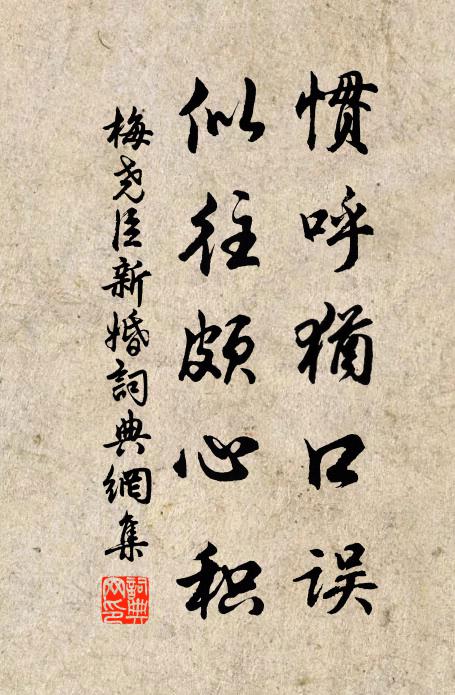 惯呼犹口误
似往颇心积
梅尧臣新婚詞典網集
詞典网印